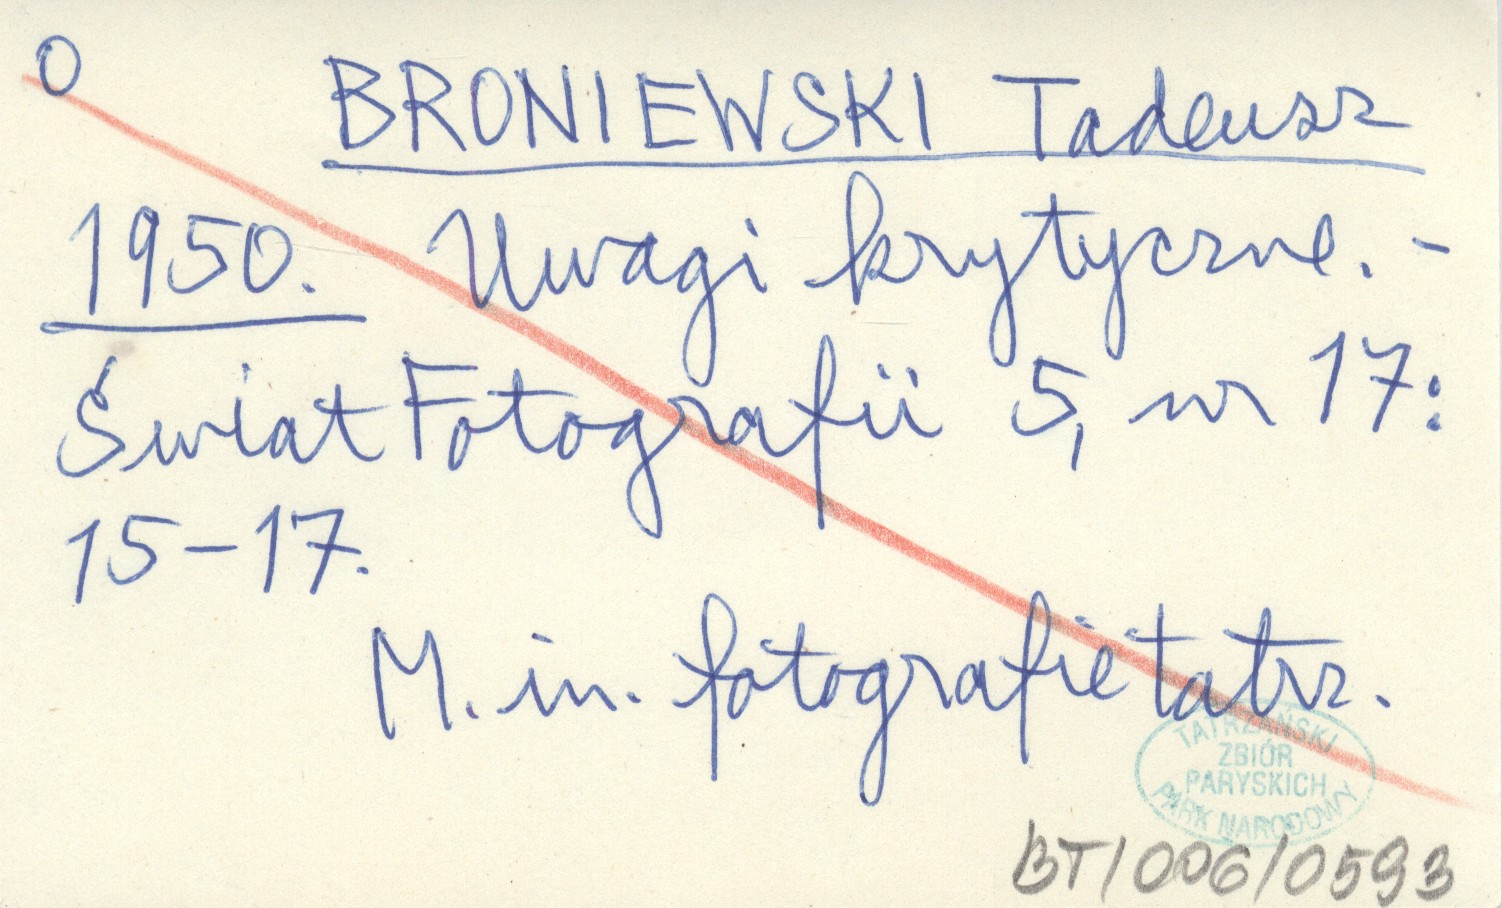 O
BRONIEWSKI Tadeusz
1950. Uwagi krytyczne. -
Świat Fotografii 5, nr 17:
15-17.
M. in. fotografie tatrz.
TATRZAŃSKI
ZBIÓR
PARYSKICH
PARK NARODOWY
BT/006/0593